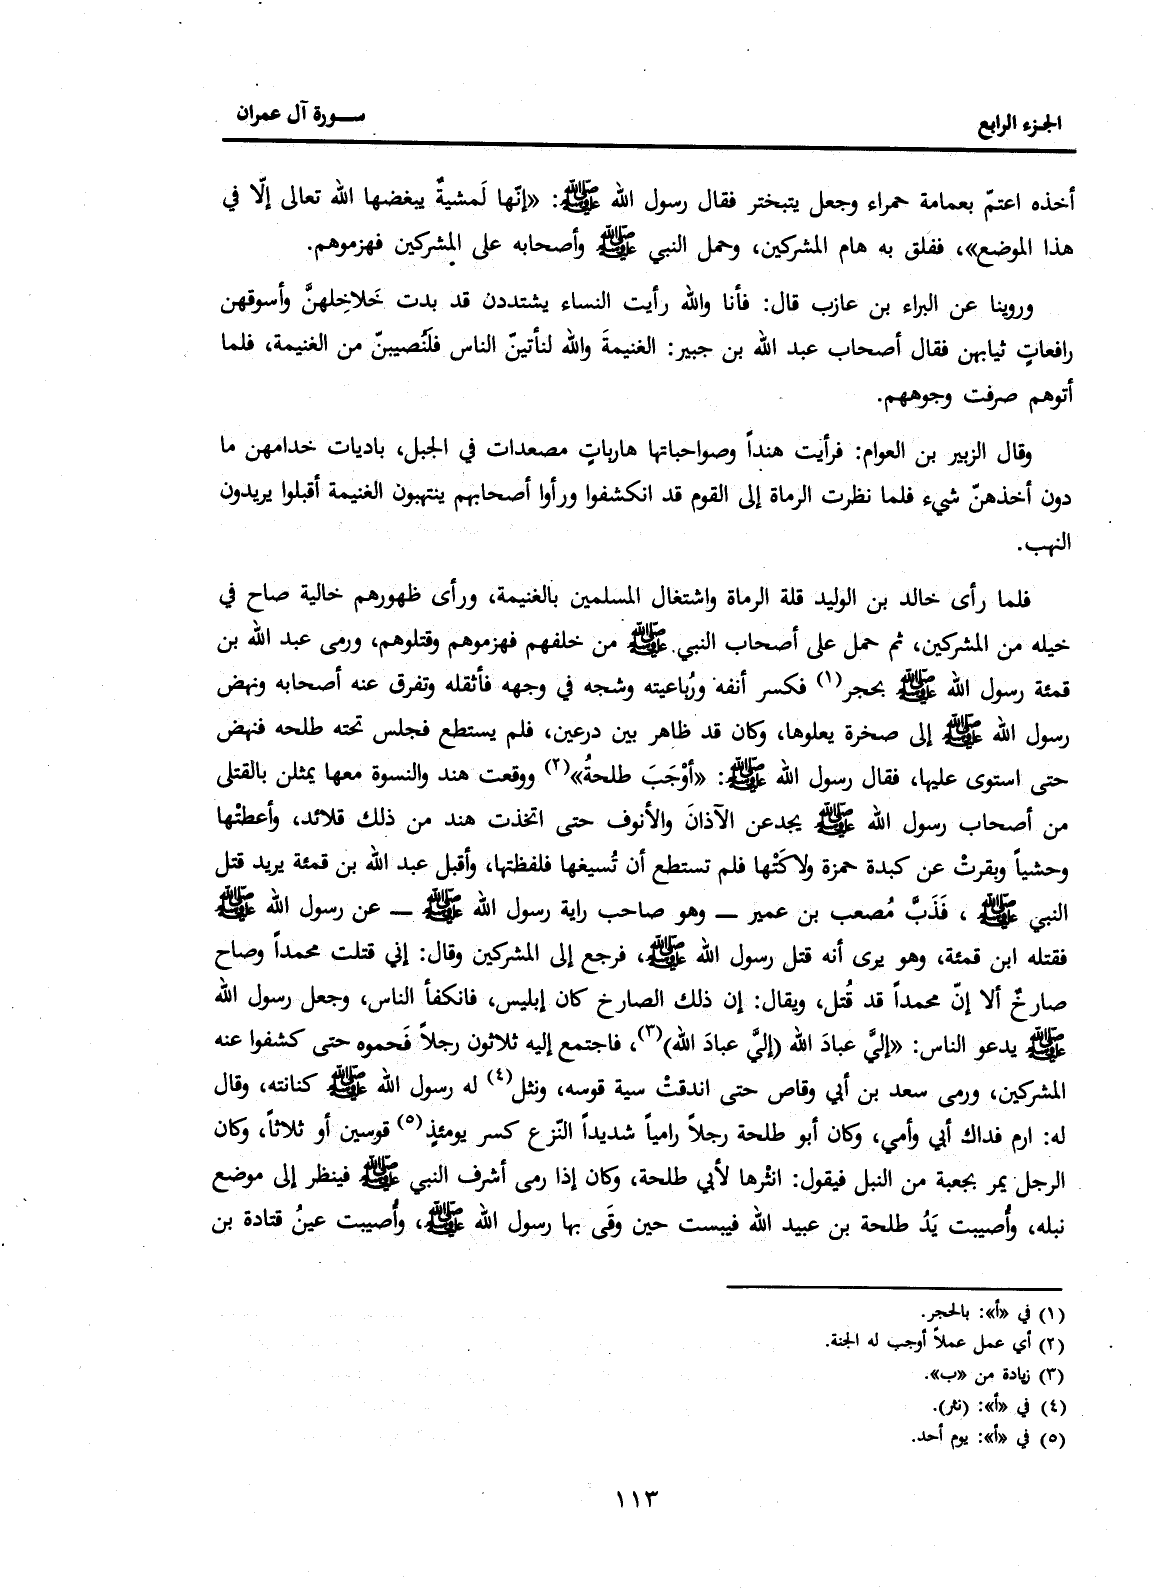 الجزء الرابع
سورة آل عمران
أخذه اعتمّ بعمامة حمراء وجعل يتبختر فقال رسول الله ﷺ: «إنّها لَمشيةٌ يبغضها الله تعالى إلّا في
هذا الموضع»، ففلق به هام المشركين، وحمل النبي ﷺ وأصحابه على المشركين فهزموهم.
وروينا عن البراء بن عازب قال: فأنا والله رأيت النساء يشتددن قد بدت خَلاخِلهنَّ وأسوقهن
رافعاتٍ ثيابهن فقال أصحاب عبد الله بن جبير: الغنيمةَ والله لنأتينّ الناس فلَنُصيبنّ من الغنيمة، فلما
أتوهم صرفت وجوههم.
وقال الزبير بن العوام: فرأيت هنداً وصواحباتها هارباتٍ مصعدات في الجبل، باديات خدامهن ما
دون أخذهنّ شيء فلما نظرت الرماة إلى القوم قد انكشفوا ورأوا أصحابهم ينتهبون الغنيمة أقبلوا يريدون
النهب.
فلما رأى خالد بن الوليد قلة الرماة واشتغال المسلمين بالغنيمة، ورأى ظهورهم خالية صاح في
خيله من المشركين، ثم حمل على أصحاب النبي ﷺ من خلفهم فهزموهم وقتلوهم، ورمى عبد الله بن
قمئة رسول الله ﷺ بحجر(١) فكسر أنفه ورُباعيته وشجه في وجهه فأثقله وتفرق عنه أصحابه ونهض
رسول الله ﷺ إلى صخرة يعلوها، وكان قد ظاهر بين درعين، فلم يستطع فجلس تحته طلحه فنهض
حتى استوى عليها، فقال رسول الله ﷺ: «أوْجَبَ طلحةُ»(٢) ووقعت هند والنسوة معها يمثلن بالقتلى
من أصحاب رسول الله ﷺ يجدعن الآذانَ والأنوف حتى اتخذت هند من ذلك قلائد، وأعطتْها
وحشياً وبقرتْ عن كبدة حمزة ولاكَتْها فلم تستطع أن تُسيغها فلفظتها، وأقبل عبد الله بن قمئة يريد قتل
النبي ﷺ ، فَذَبَّ مُصعب بن عمير ــ وهو صاحب راية رسول الله ﷺ ــ عن رسول الله ﷺ
فقتله ابن قمئة، وهو يرى أنه قتل رسول الله ﷺ، فرجع إلى المشركين وقال: إني قتلت محمداً وصاح
صارخٌ ألا إنّ محمداً قد قُتل، ويقال: إن ذلك الصارخ كان إبليس، فانكفأ الناس، وجعل رسول الله
ﷺ يدعو الناس: «إليَّ عبادَ الله (إليَّ عبادَ الله)(٣)، فاجتمع إليه ثلاثون رجلاً فَحموه حتى كشفوا عنه
المشركين، ورمى سعد بن أبي وقاص حتى اندقتْ سية قوسه، ونثل(٤) له رسول الله ﷺ كنانته، وقال
له: ارم فداك أبي وأمي، وكان أبو طلحة رجلاً رامياً شديداً النّزع كسر يومئذٍ(٥) قوسين أو ثلاثاً، وكان
الرجل يمر بجعبة من النبل فيقول: انثْرها لأبي طلحة، وكان إذا رمى أشرف النبي ﷺ فينظر إلى موضع
نبله، وأُصيبت يَدُ طلحة بن عبيد الله فيبست حين وقَى بها رسول الله ﷺ، وأُصيبت عينُ قتادة بن
(١) في «أ»: بالحجر.
(٢) أي عمل عملاً أوجب له الجنة.
(٣) زيادة من «ب».
(٤) في «أ»: (نثر).
(٥) في «أ»: يوم أحد.
١١٣